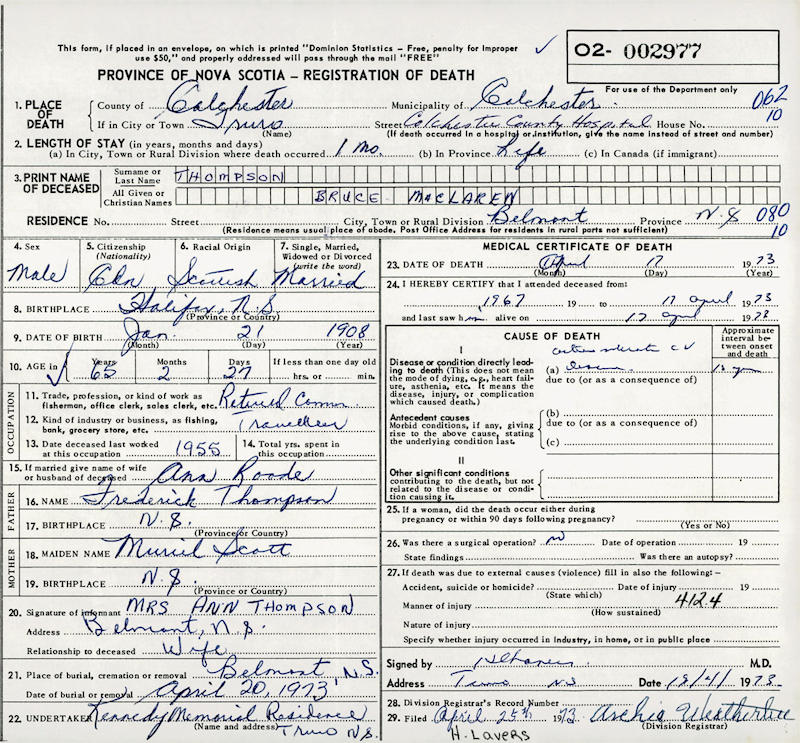 This form, if placed in an envelope, on which is printed "Dominion Statistics – Free, penalty for Improper
use $50," and properly addressed will pass through the mail "FREE"
✓ 02- 002977
PROVINCE OF NOVA SCOTIA – REGISTRATION OF DEATH
For use of the Department only
1. PLACE OF DEATH County of Colchester Municipality of Colchester 062
If in City or Town Truro Street Colchester County Hospital House No. 10
(Name) (If death occurred in a hospital or institution, give the name instead of street and number)
2. LENGTH OF STAY (in years, months and days)
(a) In City, Town or Rural Division where death occurred 1 mo. (b) In Province Life (c) In Canada (if immigrant)
3. PRINT NAME OF DECEASED Surname or Last Name THOMPSON
All Given or Christian Names BRUCE MACLAREN
RESIDENCE No. Street City, Town or Rural Division Belmont Province N S 080
(Residence means usual place of abode. Post Office Address for residents in rural parts not sufficient) 10
4. Sex 5. Citizenship (Nationality) 6. Racial Origin 7. Single, Married, Widowed or Divorced (write the word)
Male Cdn Scottish Married
8. BIRTHPLACE Halifax, N.S.
(Province or Country)
9. DATE OF BIRTH Jan. 21 1908
(Month) (Day) (Year)
10. AGE in Years Months Days If less than one day old
✓ 65 2 27 hrs. or min.
OCCUPATION
11. Trade, profession, or kind of work as fisherman, office clerk, sales clerk, etc. Retired Comm.
12. Kind of industry or business, as fishing, bank, grocery store, etc. Traveller
13. Date deceased last worked at this occupation 1955 14. Total yrs. spent in this occupation
15. If married give name of wife or husband of deceased Ann Roode
FATHER
16. NAME Frederick Thompson
17. BIRTHPLACE N.S.
(Province or Country)
MOTHER
18. MAIDEN NAME Muriel Scott
19. BIRTHPLACE N.S.
(Province or Country)
20. Signature of informant MRS ANN THOMPSON
Address Belmont, N.S.
Relationship to deceased Wife
21. Place of burial, cremation or removal Belmont N.S.
Date of burial or removal April 20, 1973
22. UNDERTAKER Kennedy Memorial Residence
(Name and address) Truro N.S.
MEDICAL CERTIFICATE OF DEATH
23. DATE OF DEATH April 17 1973
(Month) (Day) (Year)
24. I HEREBY CERTIFY that I attended deceased from:
1967 19 to 17 April 1973
and last saw h alive on 17 April 1973
CAUSE OF DEATH
Approximate interval between onset and death
I
Disease or condition directly leading to death (This does not mean the mode of dying, e.g., heart failure, asthenia, etc. It means the disease, injury, or complication which caused death.)
(a)
due to (or as a consequence of)
Antecedent causes
Morbid conditions, if any, giving rise to the above cause, stating the underlying condition last.
(b)
due to (or as a consequence of)
(c)
II
Other significant conditions contributing to the death, but not related to the disease or condition causing it.
25. If a woman, did the death occur either during
pregnancy or within 90 days following pregnancy?
(Yes or No)
26. Was there a surgical operation? no Date of operation 19
State findings Was there an autopsy?
27. If death was due to external causes (violence) fill in also the following:–
Accident, suicide or homicide? Date of injury 19
(State which) 412.4
Manner of injury
(How sustained)
Nature of injury
Specify whether injury occurred in industry, in home, or in public place
Signed by M.D.
Address Truro NS Date 18/4/ 1973
28. Division Registrar's Record Number
29. Filed April 25th 1973 Archie Weatherbee
(Division Registrar)
H. LAVERS